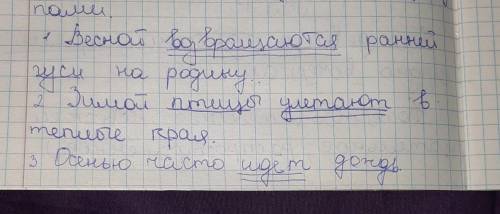 пами.
1 Весной возвращаются ранней
гуси на родину.
2 Зимой птицы улетают в
теплые края.
3 Осенью часто идет дождь.